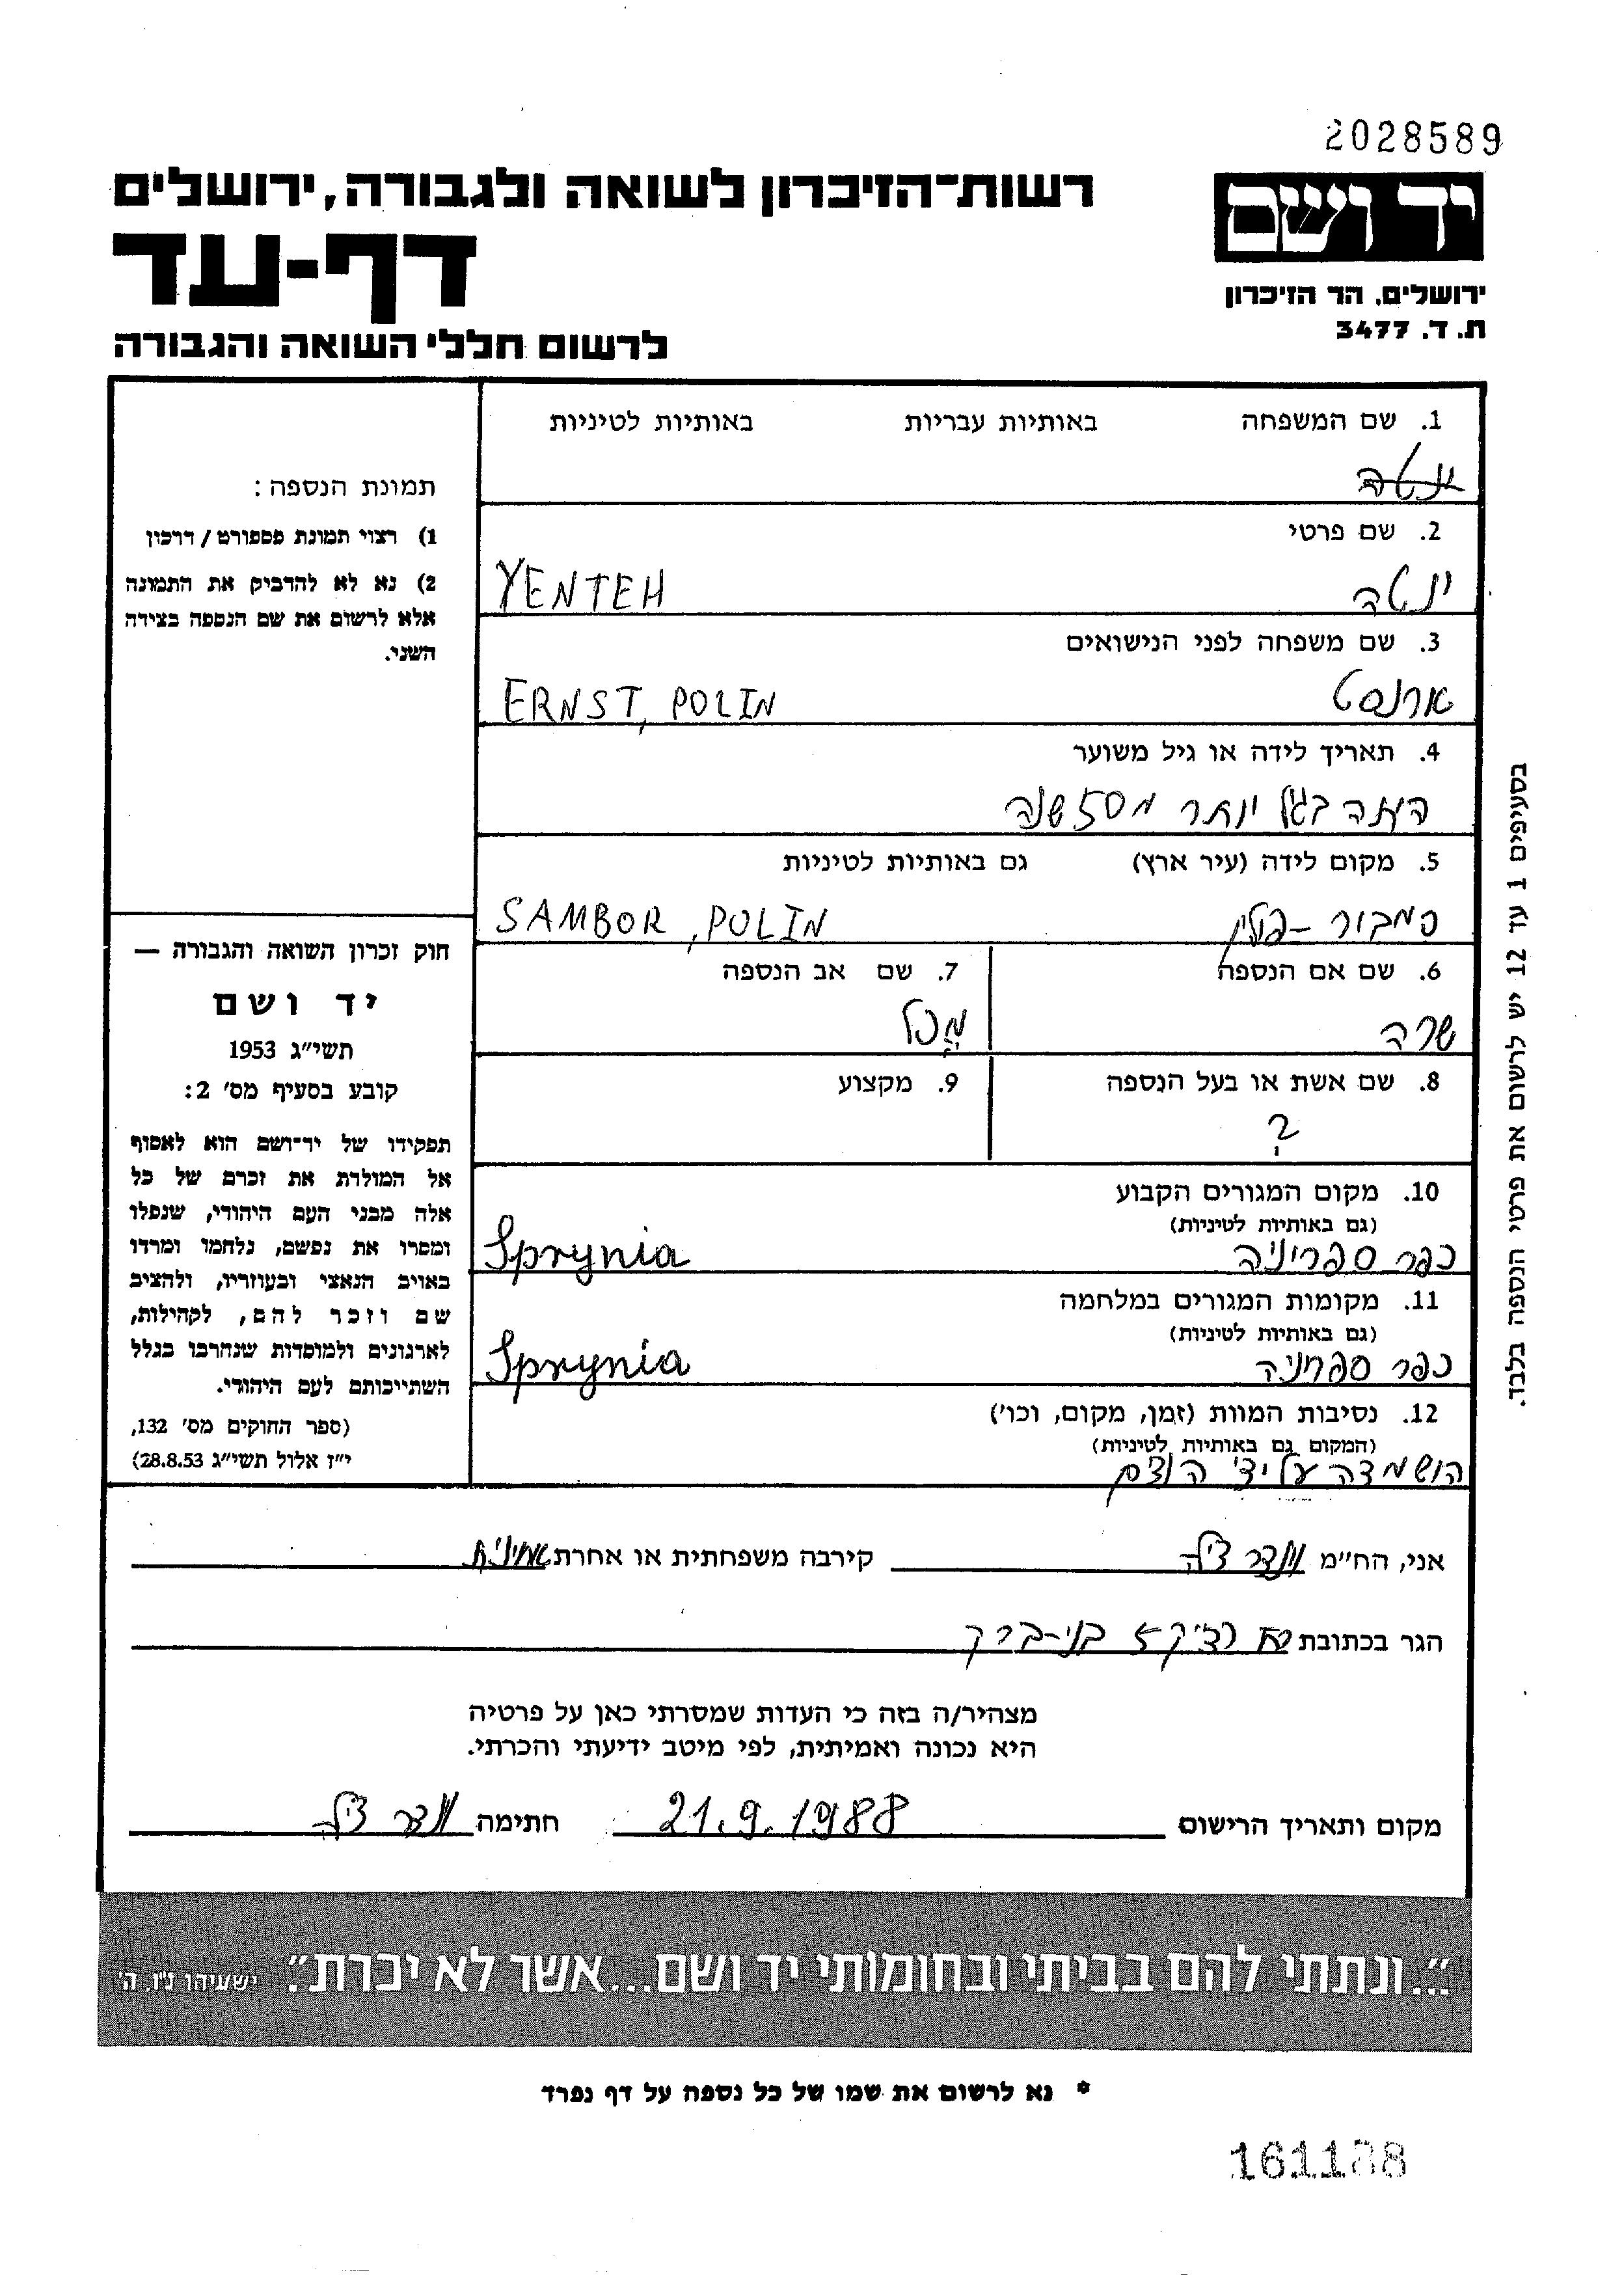 2028589
יד ושם
רשות־הזיכרון לשואה ולגבורה, ירושלים
דף-עד
ירושלים. הר הזיכרון
ת. ד. 3477
לרשום חללי השואה והגבורה
1. שם המשפחה באותיות עבריות באותיות לטיניות
ינטה
2. שם פרטי
ינטה YENTEH
3. שם משפחה לפני הנישואים
ארנסט ERNST, POLIN
4. תאריך לידה או גיל משוער
היתה בגיל יותר מ50 שנה
5. מקום לידה (עיר ארץ) גם באותיות לטיניות
סמבור - פולין SAMBOR, POLIN
6. שם אם הנספה 7. שם אב הנספה
שרה מכל
8. שם אשת או בעל הנספה 9. מקצוע
?
10. מקום המגורים הקבוע
(גם באותיות לטיניות)
כפר ספריניה Sprynia
11. מקומות המגורים במלחמה
(גם באותיות לטיניות)
כפר ספריניה Sprynia
12. נסיבות המוות (זמן, מקום, וכו')
(המקום גם באותיות לטיניות)
הושמדה על ידי
תמונת הנספה:
1) רצוי תמונת פספורט / דרכון
2) נא לא להדביק את התמונה
אלא לרשום את שם הנספה בצידה
השני.
חוק זכרון השואה והגבורה —
יד ושם
תשי״ג 1953
קובע בסעיף מס׳ 2:
תפקידו של יד־ושם הוא לאסוף
אל המולדת את זכרם של כל
אלה מבני העם היהודי, שנפלו
ומסרו את נפשם, נלחמו ומרדו
באויב הנאצי ובעוזריו, ולהציב
שם וזכר להם, לקהילות,
לארגונים ולמוסדות שנחרבו בגלל
השתייכותם לעם היהודי.
(ספר החוקים מס׳ 132,
י״ז אלול תשי״ג 28.8.53)
בסעיפים 1 עד 12 יש לרשום את פרטי הנספה בלבד.
אני, הח״מ צילה קירבה משפחתית או אחרת
הגר בכתובת 5 בני-ברק
מצהיר/ה בזה כי העדות שמסרתי כאן על פרטיה
היא נכונה ואמיתית, לפי מיטב ידיעתי והכרתי.
מקום ותאריך הרישום 21.9.1988 חתימה צילה
״...ונתתי להם בביתי ובחומותי יד ושם...אשר לא יכרת״. ישעיהו נ״ו, ה׳
* נא לרשום את שמו של כל נספה על דף נפרד
161188